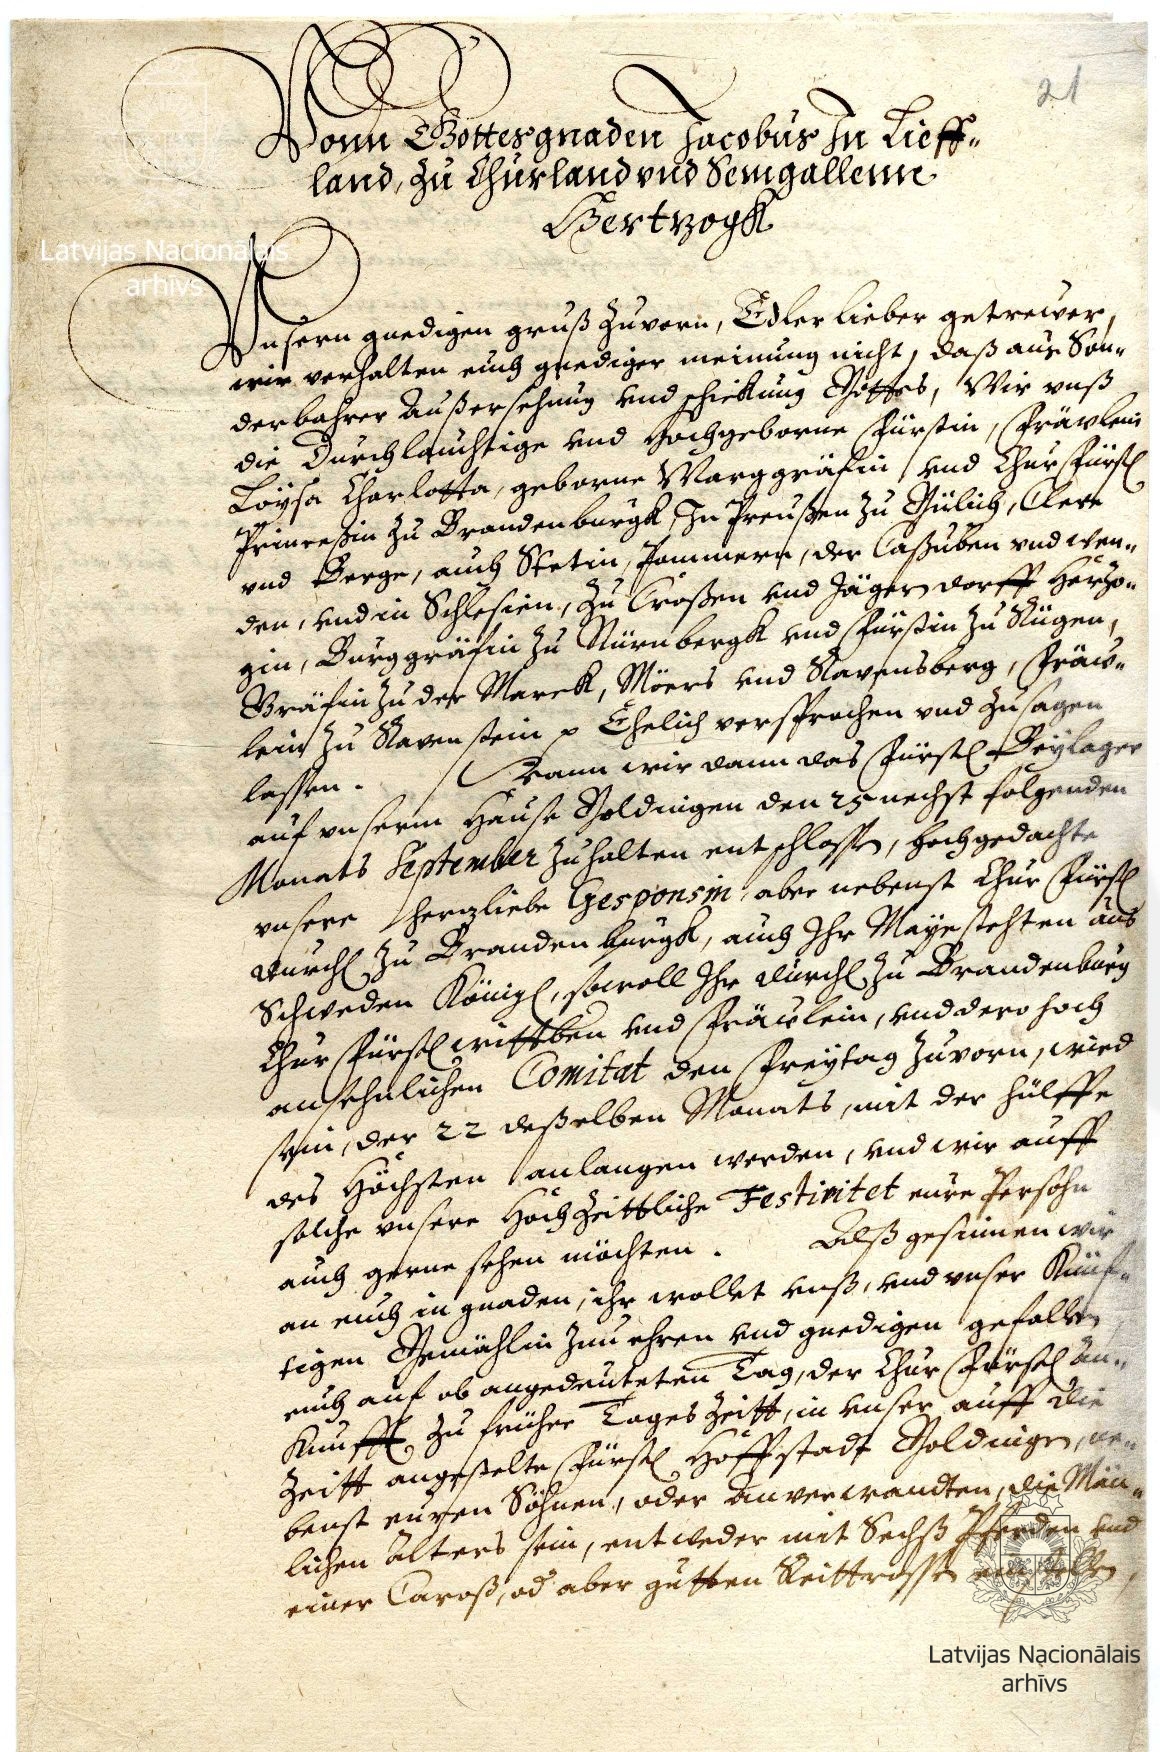 21
Vonn Gottes gnaden Jacobus In Lieff-
land, zu Churland vnd Semgallenn
Hertzogk
Latvijas Nacionālais
arhīvs
Vnsern gnedigen gruß zuvorn, Edler lieber getrewer,
wir verhalten euch gnediger meinung nicht, daß aus Son-
derbahrer Außersehung vnd schickung Gottes, Wir vnß
die Durchlauchtige vnd Hochgeborne Fürstin, Fräwlein
Loÿsa Charlotta, geborne Marggräfin, vnd ChurFürstl
Princeßin zu Brandenburgk, In Preußen zu Gülich, Cleve
vnd Berge, auch Stetin, Pommern, der Caßuben vnd Wen-
den, vnd in Schlesien, zu Croßen vnd Jägerndorff Herzo-
gin, Burggräfin zu Nürnbergk vnd Fürstin zu Rügen,
Gräfin zu der Marck, Möers vnd Ravensberg, Fräw-
lein zu Ravenstein p Ehelich versprochen vnd zusagen
lassen. Wann wir dann das Fürstl Beÿlager
auf vnserm Hause Goldingen den 25 nechst folgenden
Monats September zuhalten entschlossen, hochgedachte
vnsere herzliebe Gesponsin, aber nebenst ChurFürstl
Durchl zu Brandenburgk, auch Ihr Mayestehten aus
Schweden Königl, sowoll Ihr Durchl zu Brandenburg
ChurFürstl wittben vnd Fräwlein, vnd dero hoch
ansehnlichen Comitat den Freÿtag zuvorn, wird
sein, der 22 deßelben Monats, mit der hülffe
des Höchsten anlangen werden, vnd wir auff
solche vnsere Hochzeittliche Festivitet eure Persohn
auch gerne sehen möchten. Alß gesinnen wir
an euch in gnaden, ihr wollet vnß, vnd vnser Künf-
tigen Gemählin zuu ehren vnd gnedigen gefallen,
euch auf ob angedeuteten Tag, der ChurFürstl An-
kunfft, zu früher Tages Zeitt, in vnser auff die
Zeitt angestelte Fürstl Hoffstadt Goldingen, ne-
benst euren Söhnen, oder Anverwandten, die Män-
lichen Alters sein, entweder mit Sechß Pferden vnd
einer Caroß, od aber gutten Reittrossen einstellen,
Latvijas Nacionālais
arhīvs